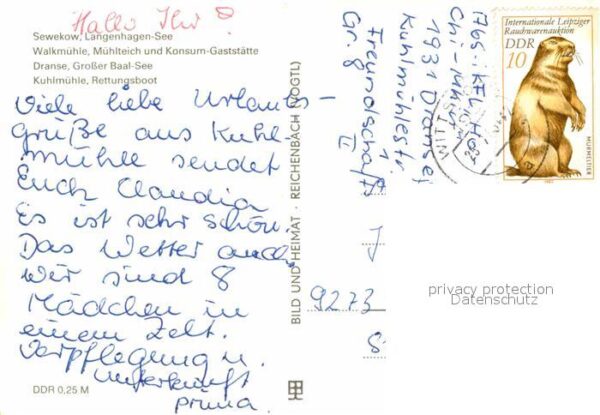 Hallo Ihr!
Sewekow, Langenhagen-See
Walkmühle, Mühlteich und Konsum-Gaststätte
Dranse, Großer Baal-See
Kuhlmühle, Rettungsboot
Viele liebe Urlaubs-
grüße aus Kuhl-
mühle sendet
Euch Claudia
Es ist sehr schön.
Das Wetter auch,
wir sind 8
Mädchen in
einem Zelt.
Verpflegung u.
Unterkunft
prima.
DDR 0,25 M
BILD UND HEIMAT · REICHENBACH (VOGTL)
1931 Dranse
Kuhlmühlestr. 1
Freundschaft II
Gr. 8
Internationale Leipziger
Rauchwarenauktion
DDR
10
MURMELTIER
1982
WITTS
9273
J
S
privacy protection
Datenschutz